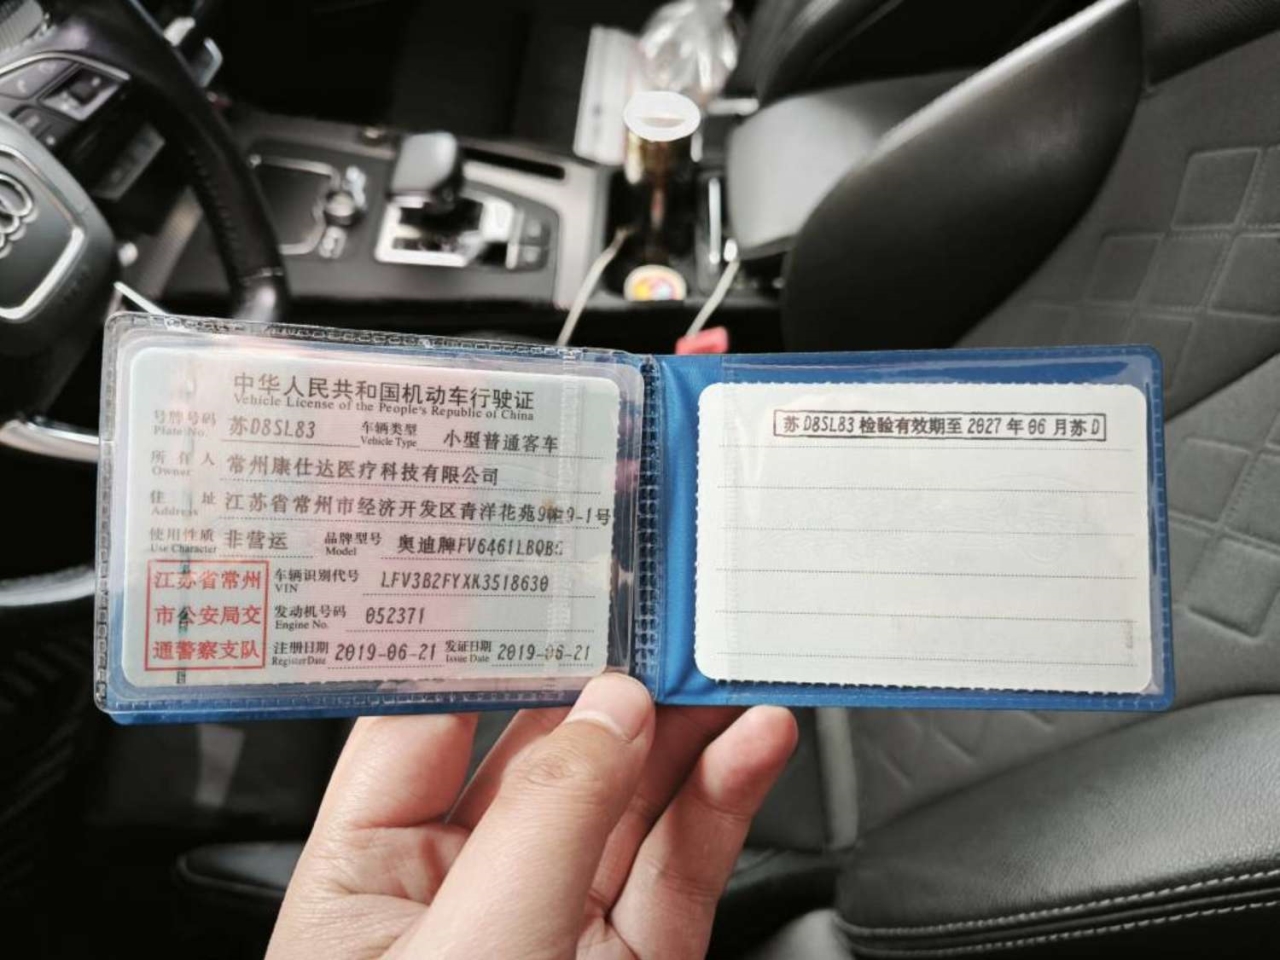 中华人民共和国机动车行驶证
Vehicle License of the People's Republic of China
号牌号码 苏D8SL83 车辆类型 小型普通客车
Plate No. Vehicle Type
所有人 常州康仕达医疗科技有限公司
Owner
住址 江苏省常州市经济开发区青洋花苑9幢9-1号
Address
使用性质 非营运 品牌型号 奥迪牌FV6461LBQBG
Use Character Model
江苏省常州
市公安局交
通警察支队
车辆识别代号 LFV3B2FYXK3518630
VIN
发动机号码 052371
Engine No.
注册日期 2019-06-21 发证日期 2019-06-21
Register Date Issue Date
苏D8SL83检验有效期至2027年06月苏D